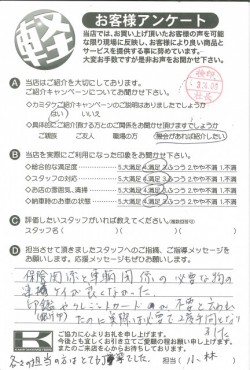 軽
お客様アンケート
当店では、お買い上げ頂いたお客様の声を可能
な限り現場に反映し、お客様により良い商品と
サービスを提供する事に努めています。
大変お手数ですが是非お声をお聞かせ下さい。
A 当店はご紹介を大切にしております。
ご紹介キャンペーンについてお聞かせ下さい。
◇カミタケご紹介キャンペーンのご説明はありましたでしょうか
はい いいえ
◇具体的にご紹介頂ける方とのご関係をお聞かせ頂けますでしょうか
ご親類 ご友人 職場の方 機会があれば紹介したい
B 当店を実際にご利用になった印象をお聞かせ下さい。
◇総合的な満足度 5.大満足 4.満足 3.ふつう 2.やや不満 1.不満
◇スタッフの対応 5.大満足 4.満足 3.ふつう 2.やや不満 1.不満
◇お店の雰囲気、清掃 5.大満足 4.満足 3.ふつう 2.やや不満 1.不満
◇納車時のお車の状態 5.大満足 4.満足 3.ふつう 2.やや不満 1.不満
C 評価したいスタッフがいれば教えてください。(複数回答可)
スタッフ名( ) ( )
D 担当させて頂きましたスタッフへのご指摘、ご指導メッセージを
お願いします。応援メッセージもぜひお願いします。
保険関係と車輌関係の必要な物の
連携などが良くなかった
印鑑やクレジットカード
ご協力に心よりお礼を申し上げます。
今後とも宜しくお引き立てご愛顧の程お願い申し上げます。
またのご来店を心よりお待ちしております。
担当( 小林 )